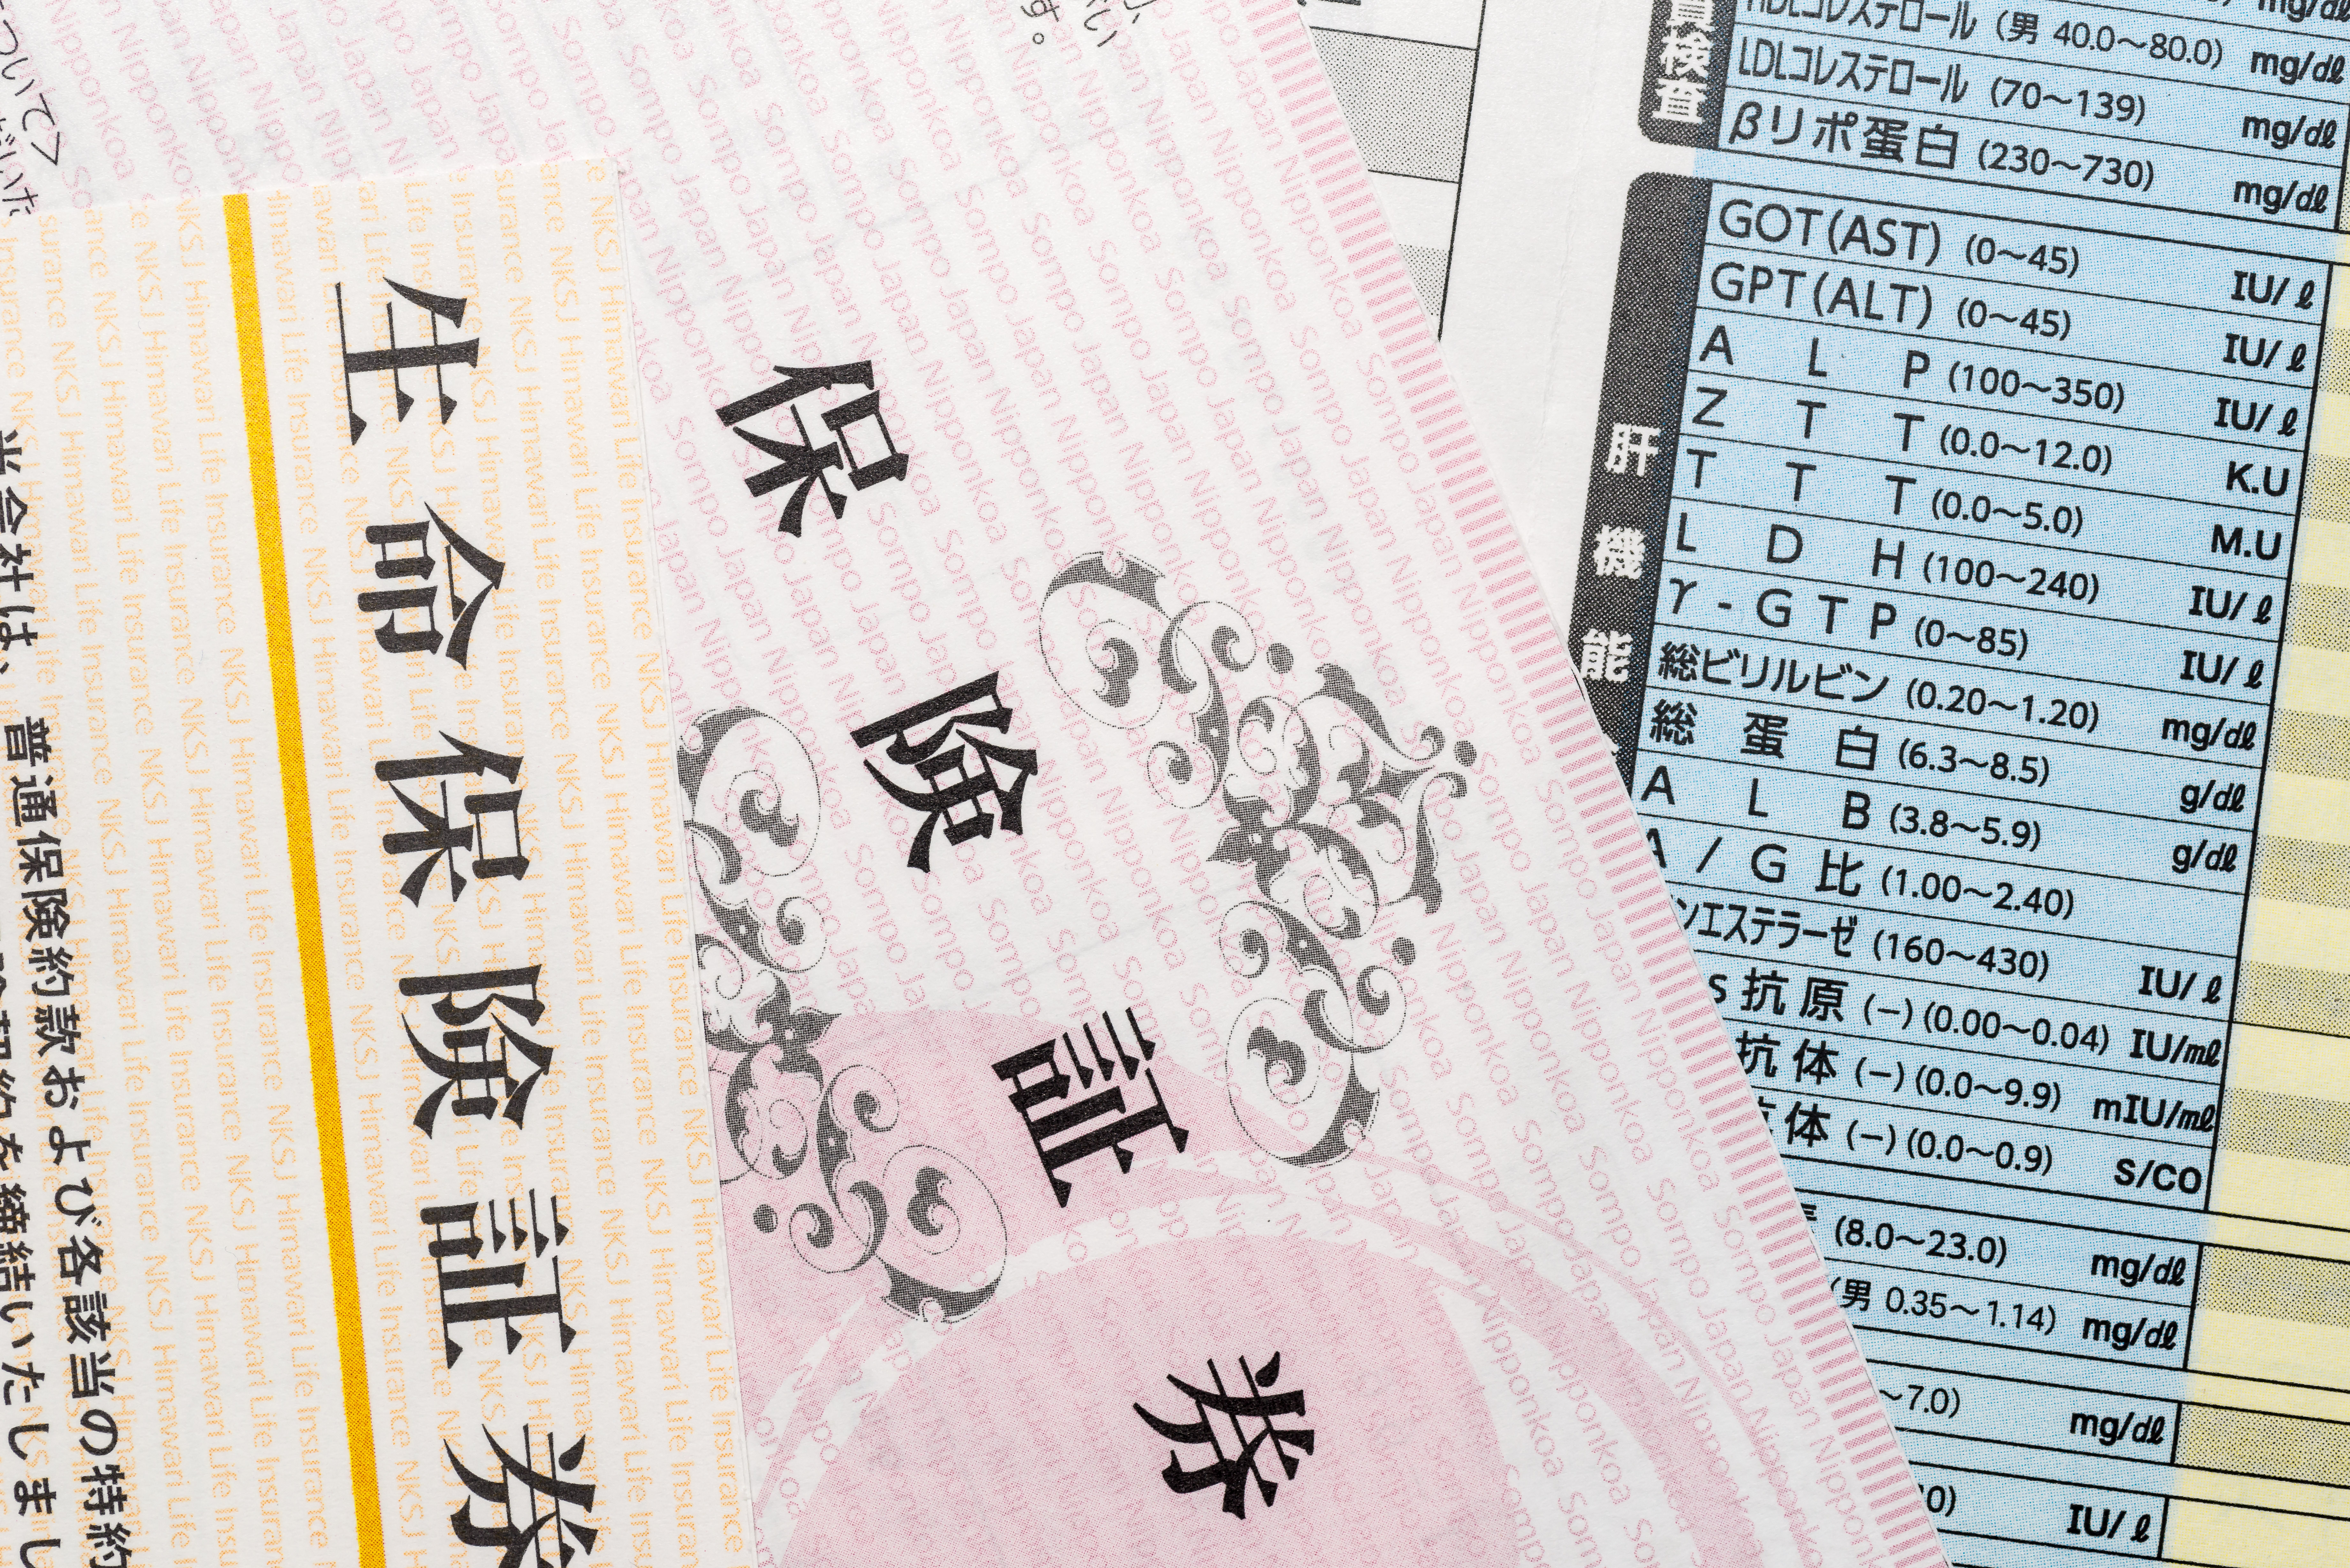 生命保険証券
当会社は、普通保険約款および各該当の特約
保険証券
Sompo Japan Nipponkoa
NKSJ Himawari Life Insurance
ついて>
す。
検査
HDLコレステロール (男 40.0～80.0) mg/dℓ
LDLコレステロール (70～139) mg/dℓ
βリポ蛋白 (230～730) mg/dℓ
肝機能
GOT(AST) (0～45) IU/ℓ
GPT(ALT) (0～45) IU/ℓ
A L P (100～350) IU/ℓ
Z T T (0.0～12.0) K.U
T T T (0.0～5.0) M.U
L D H (100～240) IU/ℓ
γ-GTP (0～85) IU/ℓ
総ビリルビン (0.20～1.20) mg/dℓ
総蛋白 (6.3～8.5) g/dℓ
A L B (3.8～5.9) g/dℓ
A/G比 (1.00～2.40)
ンエステラーゼ (160～430) IU/ℓ
s抗原 (−) (0.00～0.04) IU/mℓ
抗体 (−) (0.0～9.9) mIU/mℓ
抗体 (−) (0.0～0.9) S/CO
(8.0～23.0) mg/dℓ
(男 0.35～1.14) mg/dℓ
～7.0) mg/dℓ
0) IU/ℓ